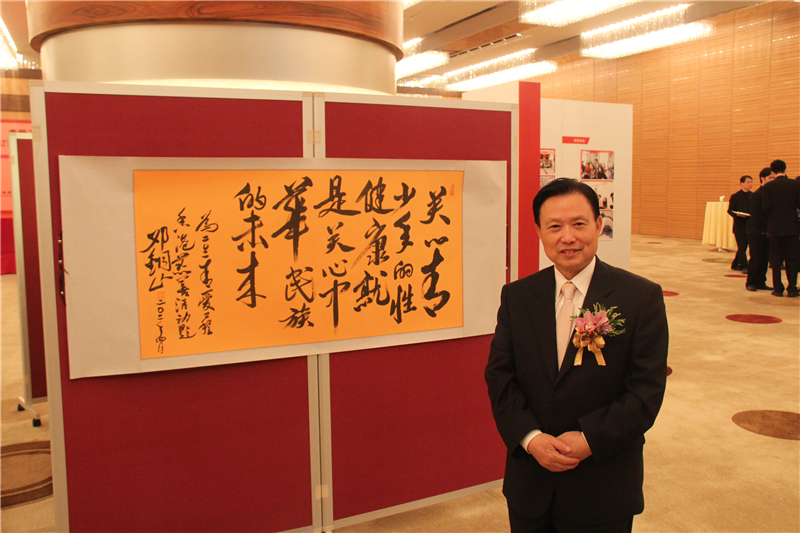 关心青
少年的性
健康就
是关心中
華民族
的未来
为二〇一二青爱工程
香港慈善活动题
邓铜山 二〇一二年四月